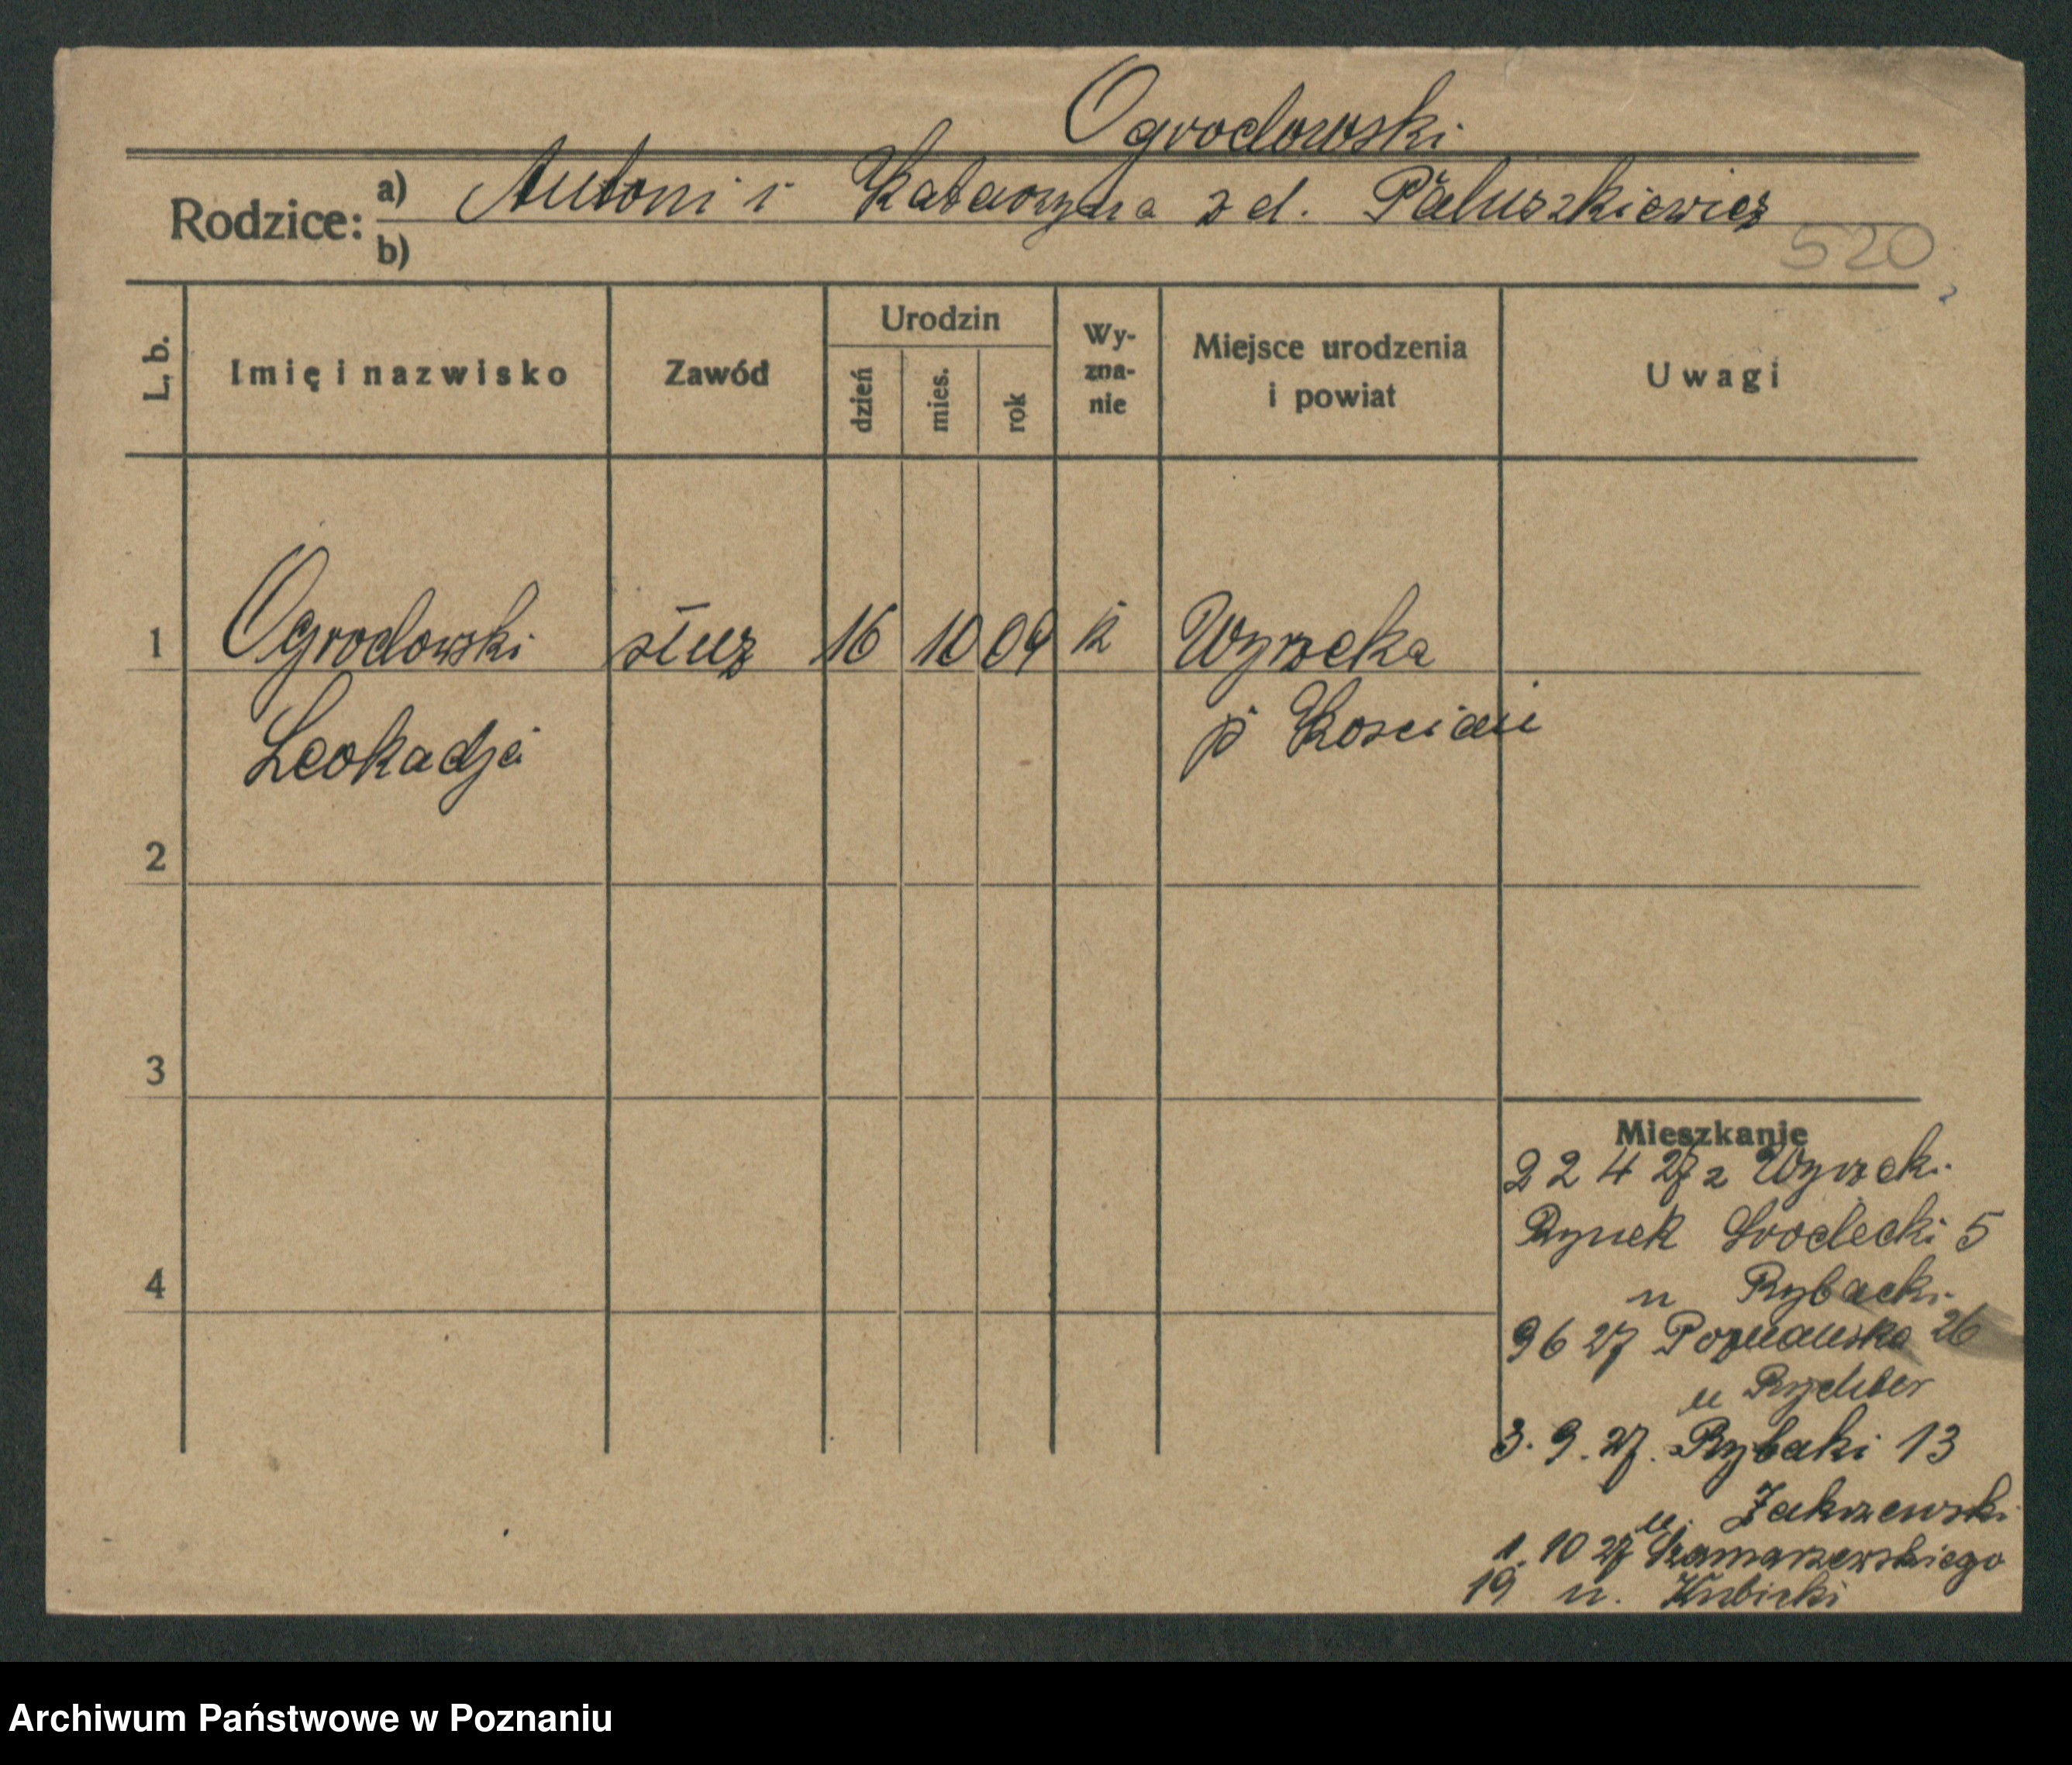 Ogrodowski
Rodzice: a) Antoni i Katarzyna z d. Paluszkiewicz
b)
520
L. b.
Imię i nazwisko
Zawód
Urodzin
dzień
mies.
rok
Wy-
zna-
nie
Miejsce urodzenia
i powiat
Uwagi
1 Ogrodowski służ 16 10 09 k Wyrzeka
Leokadja p Kościan
2
3
4
Mieszkanie
22 4 27 z Wyrzeki
Rynek Srodecki 5
u Rybacki
9 6 27 Poznańska 26
u
3. 9. 27. Rybaki 13
u. Zakrzewski
1. 10 27 Szamarzewskiego
19 u. Kubicki
Archiwum Państwowe w Poznaniu